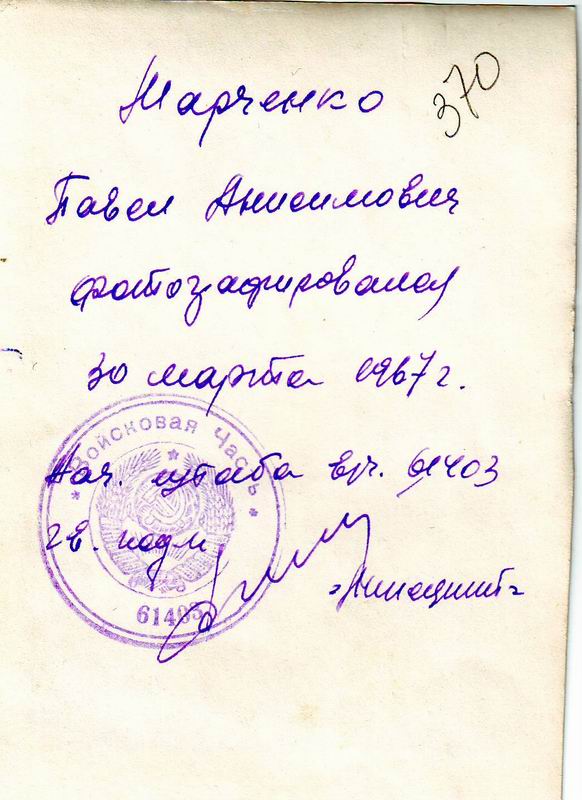 370
Марченко
Павел Анисимович
фотографировался
30 марта 1967 г.
Войсковая Часть
Нач. штаба в/ч. 61403
гв. подп
61403